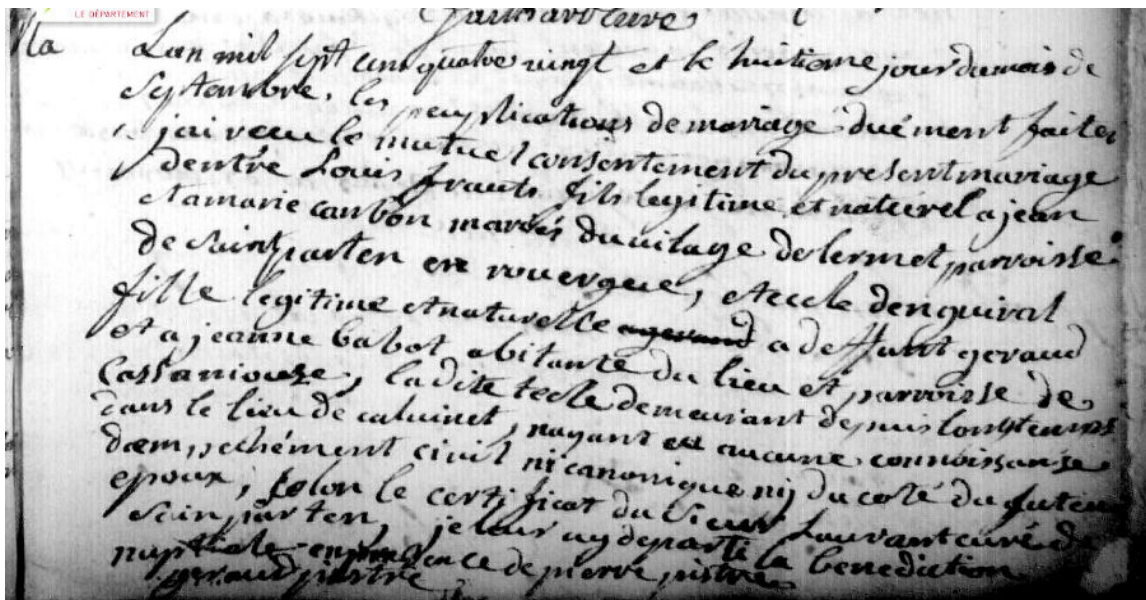 LE DÉPARTEMENT
curé
Lan mil sept cens quatre vingt et le huitieme jour du mois de
Septembre, les peuplications de mariage duément faites
jai receu le mutuel consentement du present mariage
dentre Louis frauts fils legitime et naturel a jean
et a marie carbon mariés du vilage de lermet parroisse
de saint parten en rouergue, et tecle denguiral
fille legitime et naturelle a geraud a deffunt geraud
et a jeanne babot abitante du lieu et parroisse de
Cassaniouze, ladite tecle demeurant depuis longtemps
dans le lieu de caluinet, nayant eu aucune connoissanse
dempechément civil ni canonique ni du coté du futeur
epoux, selon le certificat du sieur Lauvant curé de
Sain parten, je leur ay departi la benediction
nuptiale en presence de pierre pistre
geraud pistre